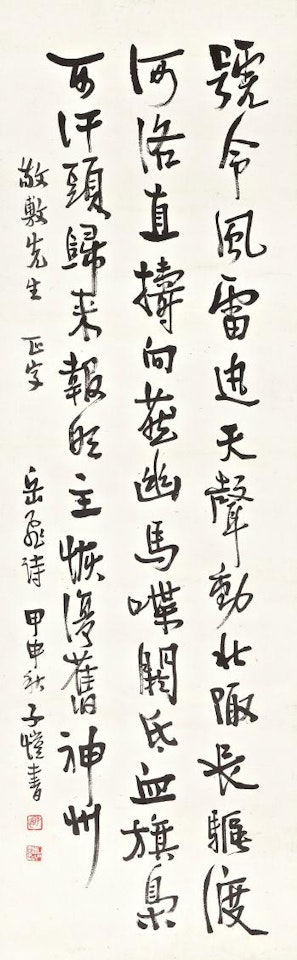 號令風雷迅天聲動北陬長驅渡
河洛直擣向燕幽馬喋閼氏血旗梟
可汗頭歸來報明主恢復舊神州
敬敷先生 正字 岳飛詩 甲申秋子愷書